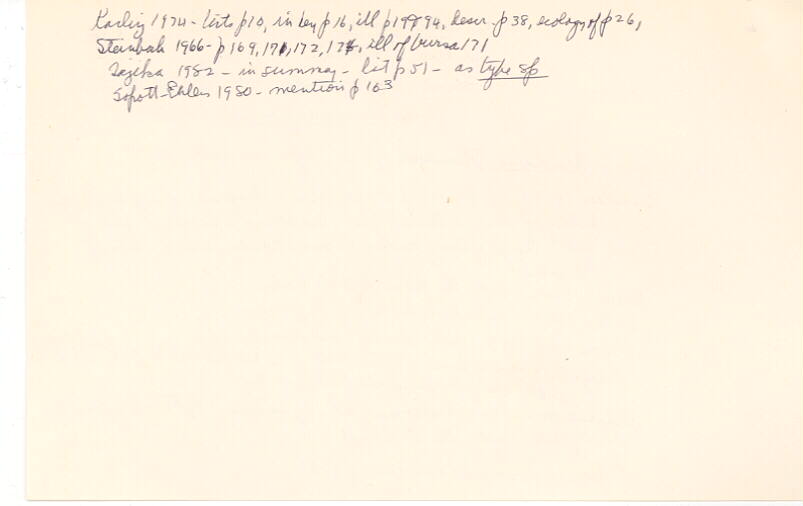 Karling 1974 - lists p10, in key p 16, ill p 94, descr. p 38, ecology of p 26,
Steinbock 1966 - p 169, 171, 172, ill of bursa 171
Tajika 1982 - in summary - list p 51 - as type sp
Sopott-Ehlers 1980 - mention p 163